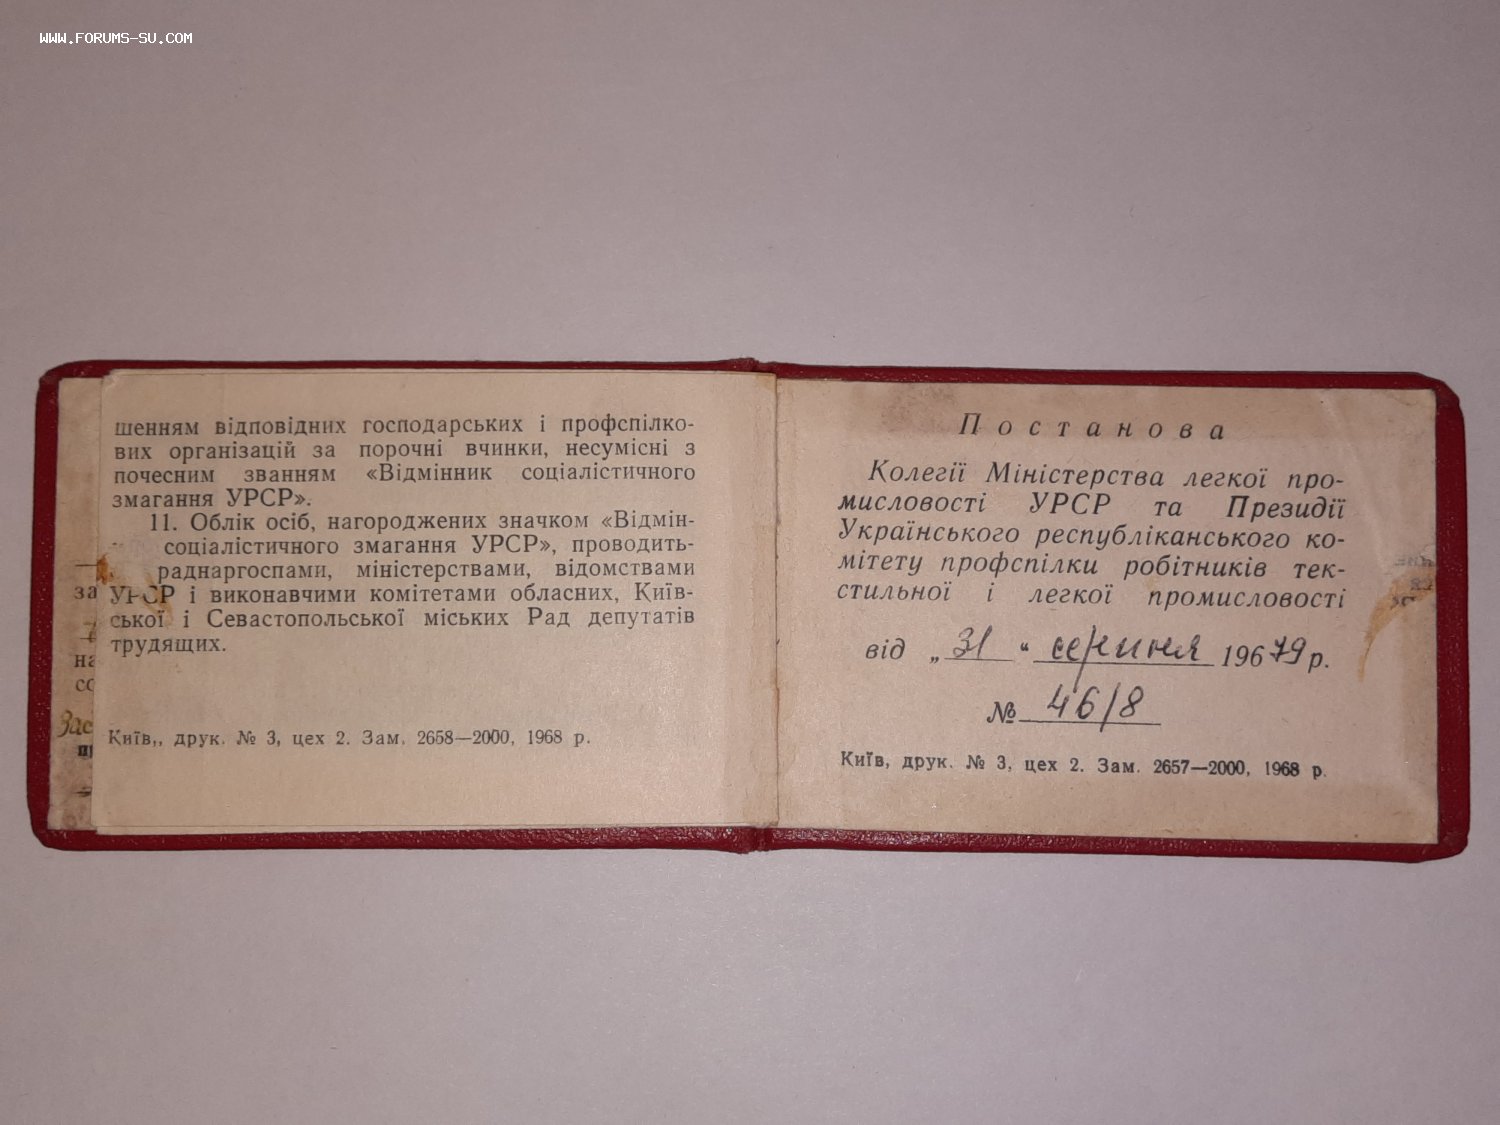 WWW.FORUMS-SU.COM
шенням відповідних господарських і профспілко-
вих організацій за порочні вчинки, несумісні з
почесним званням «Відмінник соціалістичного
змагання УРСР».
11. Облік осіб, нагороджених значком «Відмін-
соціалістичного змагання УРСР», проводить-
раднаргоспами, міністерствами, відомствами
УРСР і виконавчими комітетами обласних, Київ-
ської і Севастопольської міських Рад депутатів
трудящих.
Київ,, друк. № 3, цех 2. Зам. 2658—2000, 1968 р.
за
на
со
Зас
Постанова
Колегії Міністерства легкої про-
мисловості УРСР та Президії
Українського республіканського ко-
мітету профспілки робітників тек-
стильної і легкої промисловості
від „31“ серпня 19679р.
№ 46/8
Київ, друк. № 3, цех 2. Зам. 2657—2000, 1968 р.